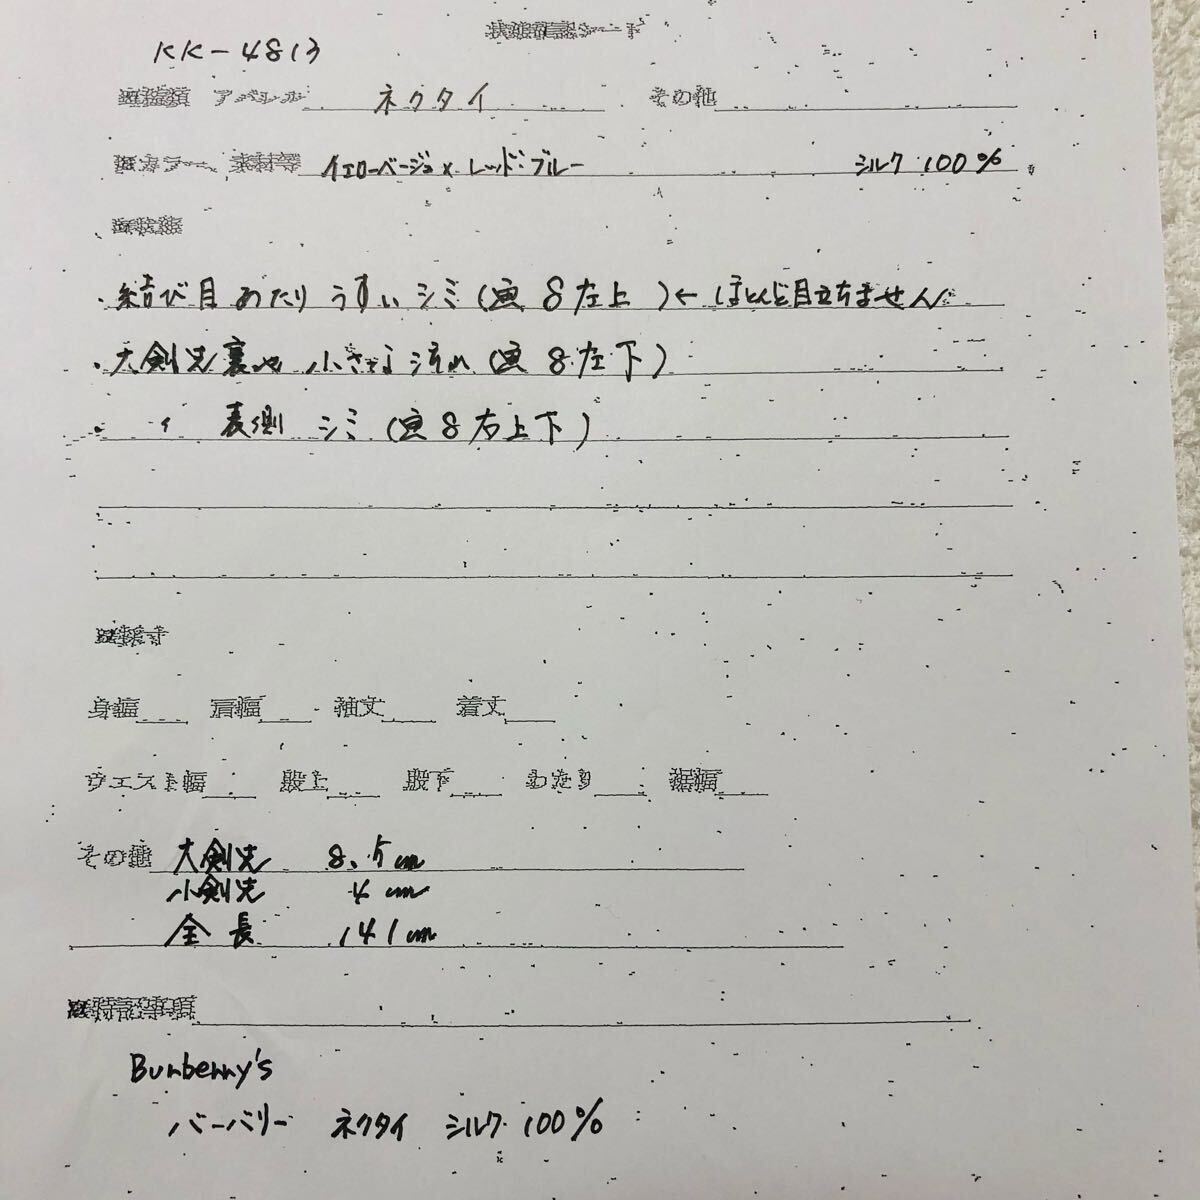 状態確認シート
KK-4813
アパレル ネクタイ その他
カラー 素材等 イエローベージュ×レッド・ブルー シルク 100%
・結び目あたりうすいシミ(画8左上)←ほとんど目立ちません
・大剣先裏地 小さな汚れ(画8左下)
・ 〃 表側 シミ(画8右上下)
身幅 肩幅 袖丈 着丈
ウエスト幅 股上 股下 わたり 裾幅
その他 大剣先 8.5cm
小剣先 4cm
全長 141cm
特記事項
Burberry's
バーバリー ネクタイ シルク 100%